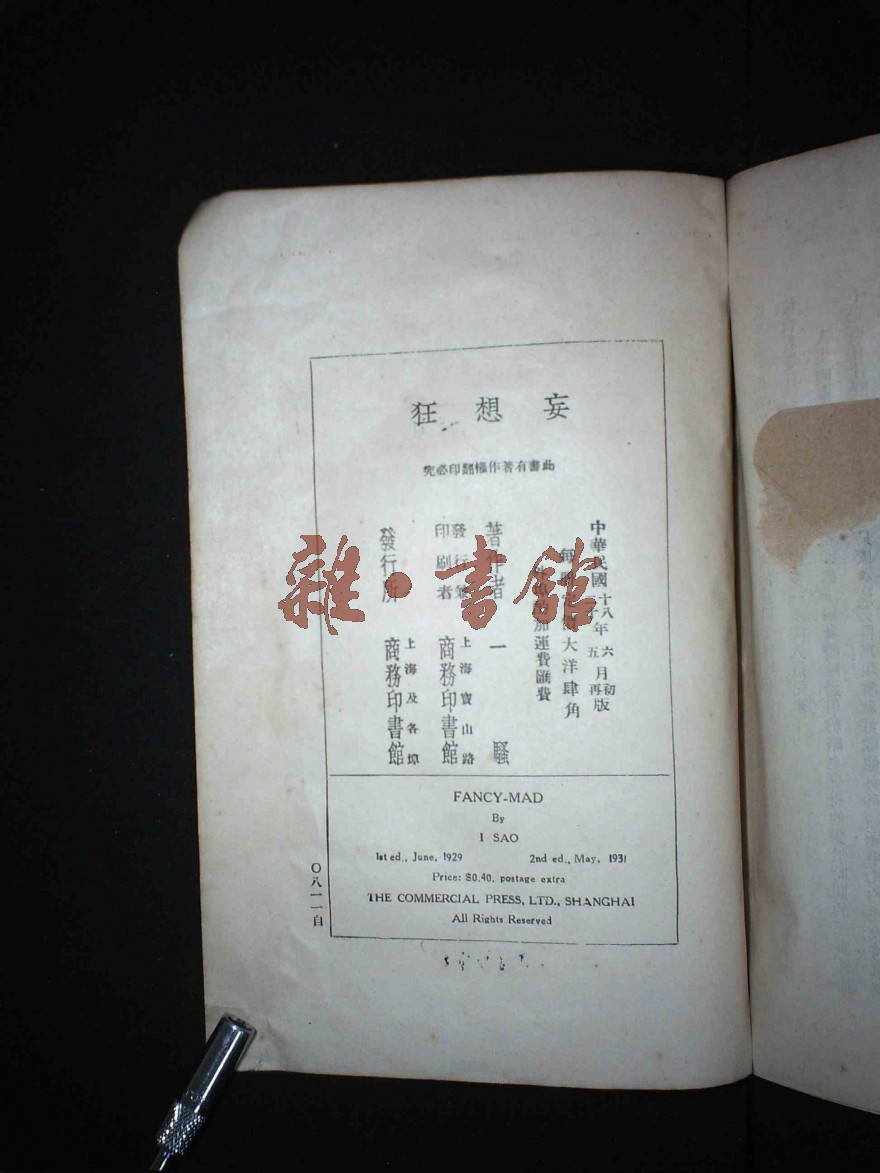 妄想狂
此書有著作權翻印必究
中華民國十八年六月初版
二十年五月再版
每冊定價大洋肆角
外埠酌加運費匯費
著作者 一騷
發行兼
印刷者
上海寶山路
商務印書館
發行所
上海及各埠
商務印書館
FANCY-MAD
By
I SAO
1st ed., June, 1929 2nd ed., May, 1931
Price: $0.40, postage extra
THE COMMERCIAL PRESS, LTD., SHANGHAI
All Rights Reserved
〇八一一自
雜·書館